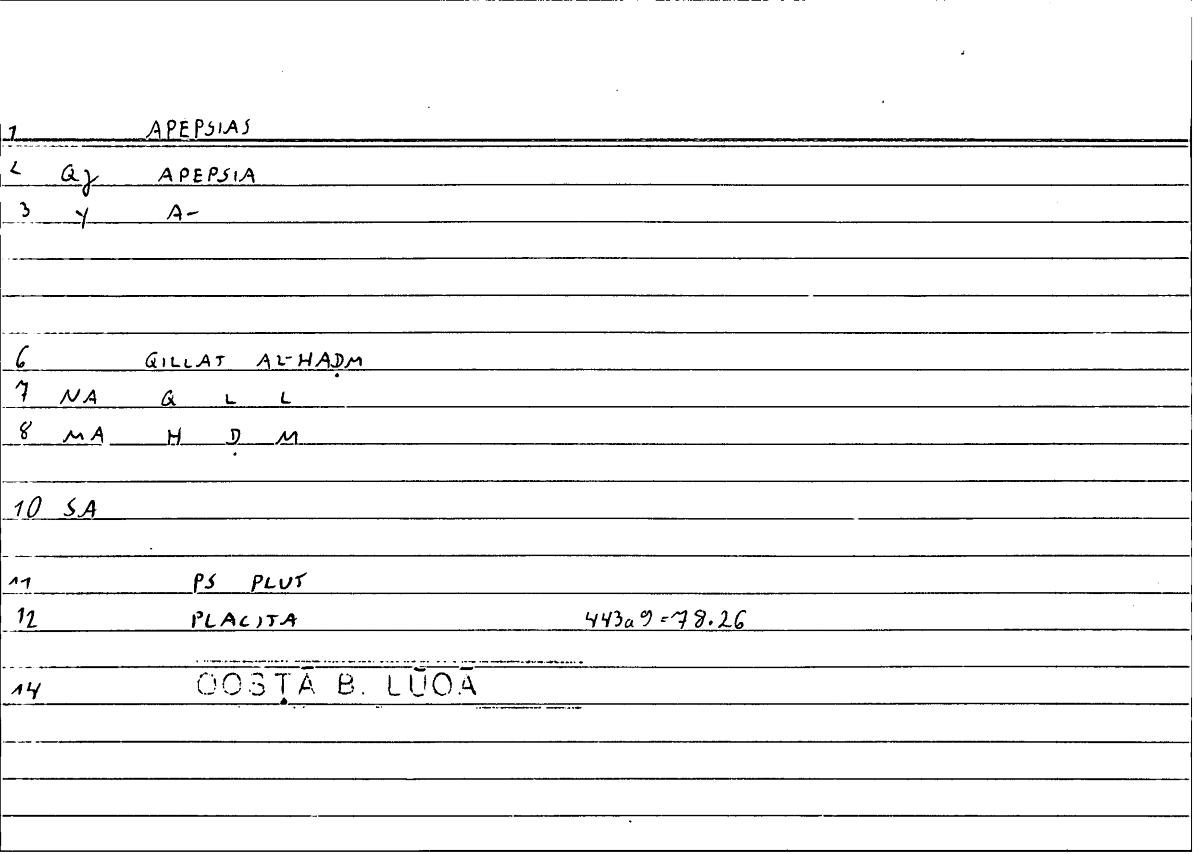 1 APEPSIAS
2 Qγ APEPSIA
3 γ A-
6 QILLAT AL-HAḌM
7 NA Q L L
8 MA H Ḍ M
10 SA
11 PS PLUT
12 PLACITA 443a9=78.26
14 QOSṬĀ B. LŪQĀ